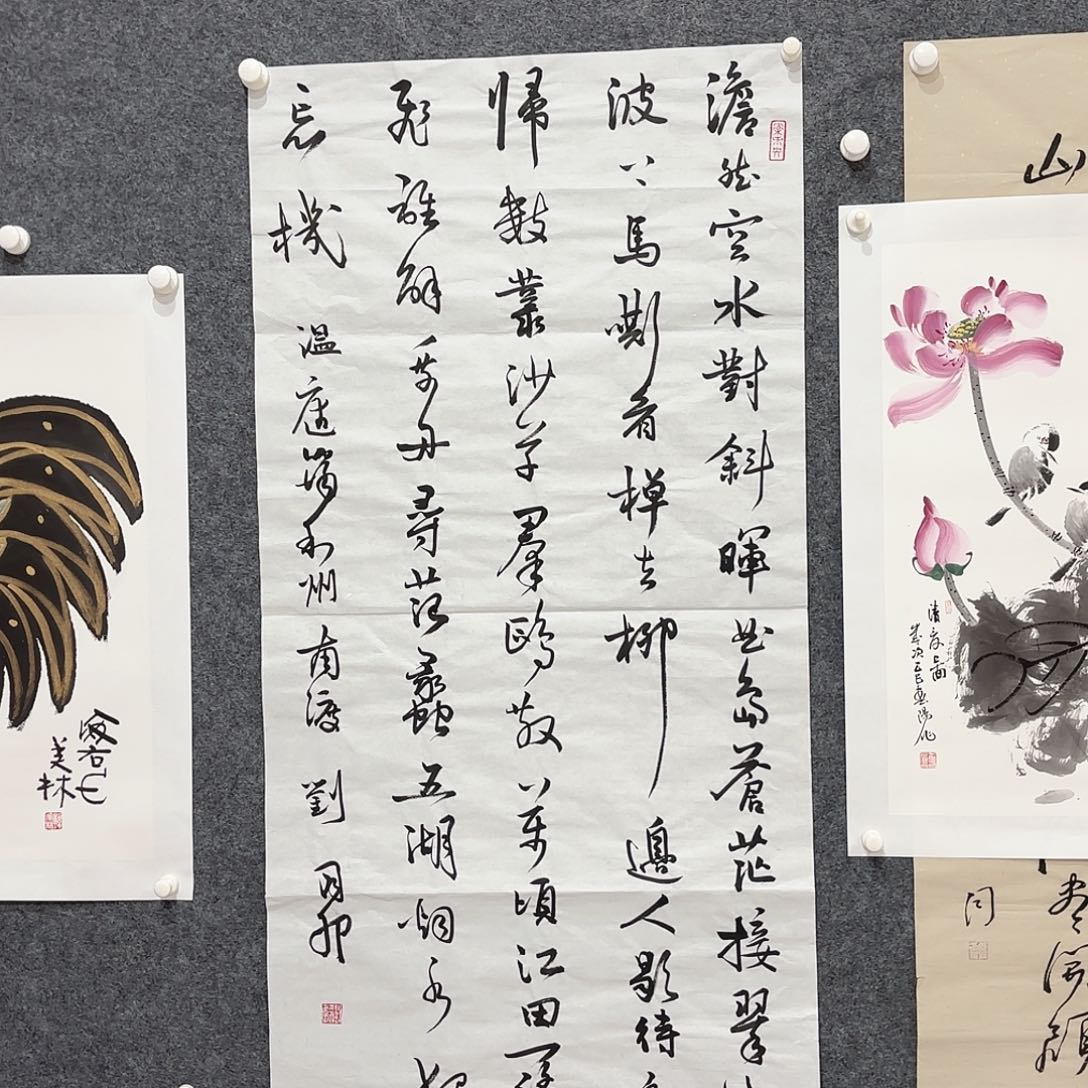 澹然空水對斜暉曲島蒼茫接翠
波上馬嘶看棹去柳邊人歇待
歸數叢沙草羣鷗散萬頃江田一
飛誰解乘舟尋范蠡五湖烟水
忘機 温庭筠利州南渡 劉
美林
山
歲次乙巳